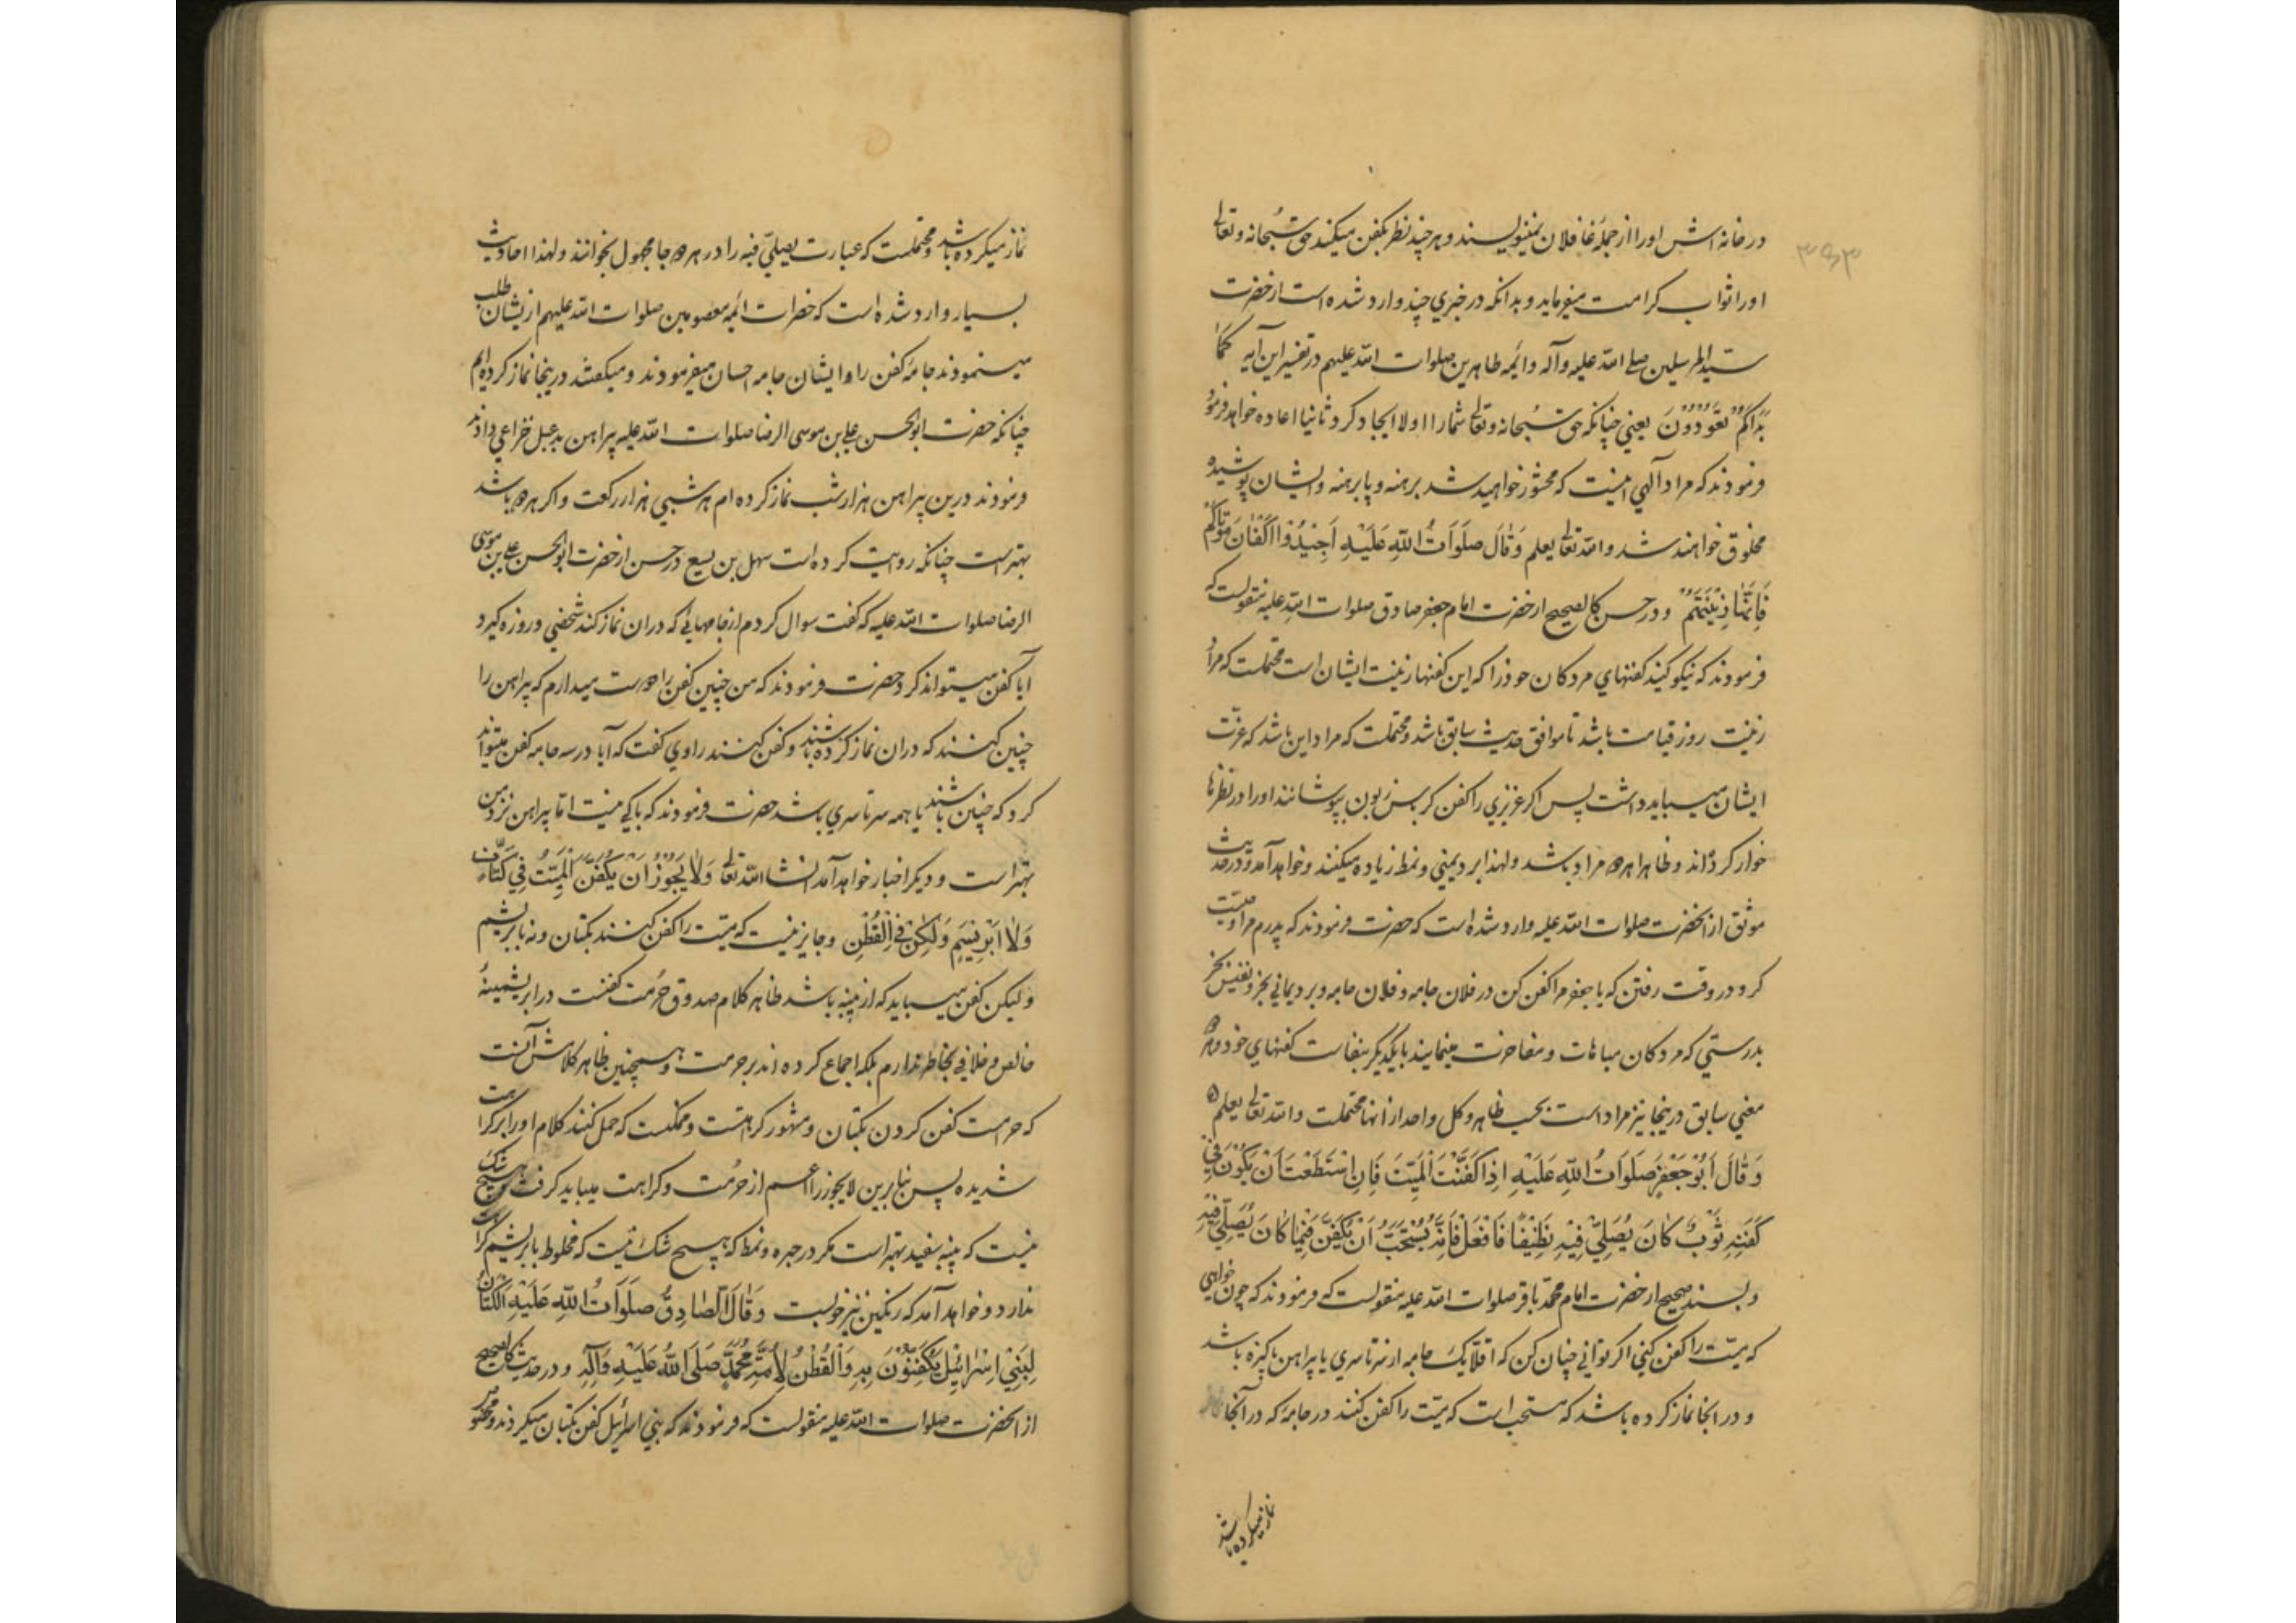 ۳۹۳
در خانه اش او را از جملهٔ غافلان نمینویسند و هر چند نظر بکفن میکند حق سُبحانه و تعالی
او را ثواب کرامت میفرماید و بدانکه در خبری چند وارد شده است از حضرت
سیّد المرسلین صلی الله علیه و آله و ائمه طاهرین صلوات الله علیهم در تفسیر این آیه کَمَا
بَدَاَکُمْ تَعُوْدُوْنَ یعنی چنانکه حق سُبحانه و تعالی شما را اولا ایجاد کرد و ثانیا اعاده خواهد فرمود
فرمودند که مراد آلهی اینست که محشور خواهید شد برهنه و پا برهنه و ایشان پوشیده
مخلوق خواهند شد و الله تعالی یعلم وَقَالَ صَلَوَاتُ اللّٰهِ عَلَیْهِ اَجِیْدُوْا اَکْفَانَ مَوْتَاکُمْ
فَاِنَّهَا زِیْنَتُهُمْ و در حسن کالصحیح از حضرت امام جعفر صادق صلوات الله علیه منقولست که
فرمودند که نیکو کنید کفنهای مردکان خود را که این کفنها زینت ایشان است محتملست که مراد
زینت روز قیامت باشد تا موافق حدیث سابق باشد و محتملست که مراد این باشد که عزّت
ایشان میباید داشت پس اکر عزیزی را کفن کرباس زبون بپوشانند او را در نظرها
خوار کرده‌اند و ظاهرا هر دو مراد باشد و لهذا برد یمنی و نمط زیاده میکنند و خواهد آمد و در حدیث
موثق از انحضرت صلوات الله علیه وارد شده است که حضرت فرمودند که پدرم مرا وصیت
کرد در وقت رفتن که یا جعفر مرا کفن کن در فلان جامه و فلان جامه و برد یمانی بخر و نفیس بخر
بدرستی که مردکان مباهات و مفاخرت مینمایند با یکدیکر بنفاست کفنهای خود و هر دو
معنی سابق درینجا نیز مراد است بحسب ظاهر و کل واحد از انها محتملست و الله تعالی یعلم
وَقَالَ اَبُوْجَعْفَرٍ صَلَوَاتُ اللّٰهِ عَلَیْهِ اِذَا کَفَّنْتَ الْمَیِّتَ فَاِنِ اسْتَطَعْتَ اَنْ یَکُوْنَ فِی
کَفَنِهِ ثَوْبٌ کَانَ یُصَلِّیْ فِیْهِ نَظِیْفًا فَافْعَلْ فَاِنَّهُ یُسْتَحَبُّ اَنْ یُکَفَّنَ فِیْمَا کَانَ یُصَلِّیْ فِیْهِ
و بسند صحیح از حضرت امام محمّد باقر صلوات الله علیه منقولست که فرمودند که چون خواهی
که میّت را کفن کنی اکر توانی چنان کن که اقلّا یک جامه از سرتاسری یا پراهن پاکیزه باشد
و در انجا نماز کرده باشد که مستحب است که میّت را کفن کنند در جامهٔ که در آنجا
نماز میکرده باشد
نماز میکرده باشد و محتملست که عبارت یصلیّ فیه را در هر دو جا مجهول بخوانند و لهذا احادیث
بسیار وارد شده است که حضرات ائمه معصومین صلوات الله علیهم ازیشان طلب
مینمودند جامهٔ کفن را و ایشان جامه احسان میفرمودند و میکفتند درینجا نماز کرده ایم
چنانکه حضرت ابو الحسن علی بن موسی الرضا صلوات الله علیه پیراهن بدعبل خزاعی دادند
فرمودند درین پیراهن هزار شب نماز کرده ام هر شبی هزار رکعت و اکر هر دو باشد
بهتر است چنانکه روایت کرده است سهل بن یسع در حسن از حضرت ابو الحسن علی بن موسی
الرضا صلوات الله علیه که کفت سوال کردم از جامهایی که دران نماز کند شخصی و روزه کیرد
آیا کفن میتواند کرد حضرت فرمودند که من چنین کفن را دوست میدارم که پراهن را
چنین کنند که دران نماز کرده باشند و کفن کنند راوی کفت که آیا در سه جامه کفن میتواند
کرد که چنین باشند یا همه سرتاسری باشد حضرت فرمودند که باکی نیست امّا پیراهن نزد من
بهتر است و دیکر اخبار خواهد آمد انشا الله تعالی وَلَا یَجُوْزُ اَنْ یُکَفَّنَ الْمَیِّتُ فِیْ کَتَّانٍ
وَلَا اِبْرِیْسَمٍ وَلٰکِنْ فِی الْقُطْنِ و جایز نیست که میّت را کفن کنند بکتان و نه بابریشم
و لیکن کفن میباید که از پنبه باشد ظاهر کلام صدوق حُرمت کفنست در ابریشمینهٔ
خالص و خلافی بخاطر ندارم بلکه اجماع کرده اند بر حرمت و همچنین ظاهر کلامش آنست
که حرامست کفن کردن بکتان و مشهور کراهتست و ممکنست که حمل کنند کلام او را بر کراهت
شدیده پس بنابرین لایجوز را اعم از حُرمت و کراهت میباید کرفت و هیچ شک
نیست که پنبه سفید بهتر است مکر در حبره و نمط که هیچ شک نیست که مخلوط بابریشم کراهت
ندارد و خواهد آمد که رنکین نیز خوبست وَقَالَ الصَّادِقُ صَلَوَاتُ اللّٰهِ عَلَیْهِ الْکَتَّانُ
لِبَنِیْ اِسْرَائِیْلَ یُکَفَّنُوْنَ بِهِ وَالْقُطْنُ لِاُمَّةِ مُحَمَّدٍ صَلَی اللّٰهُ عَلَیْهِ وَآلِهِ و در حدیث کالصحیح
از انحضرت صلوات الله علیه منقولست که فرمودند که بنی اسرائیل کفن بکتان میکردند و مخصوص